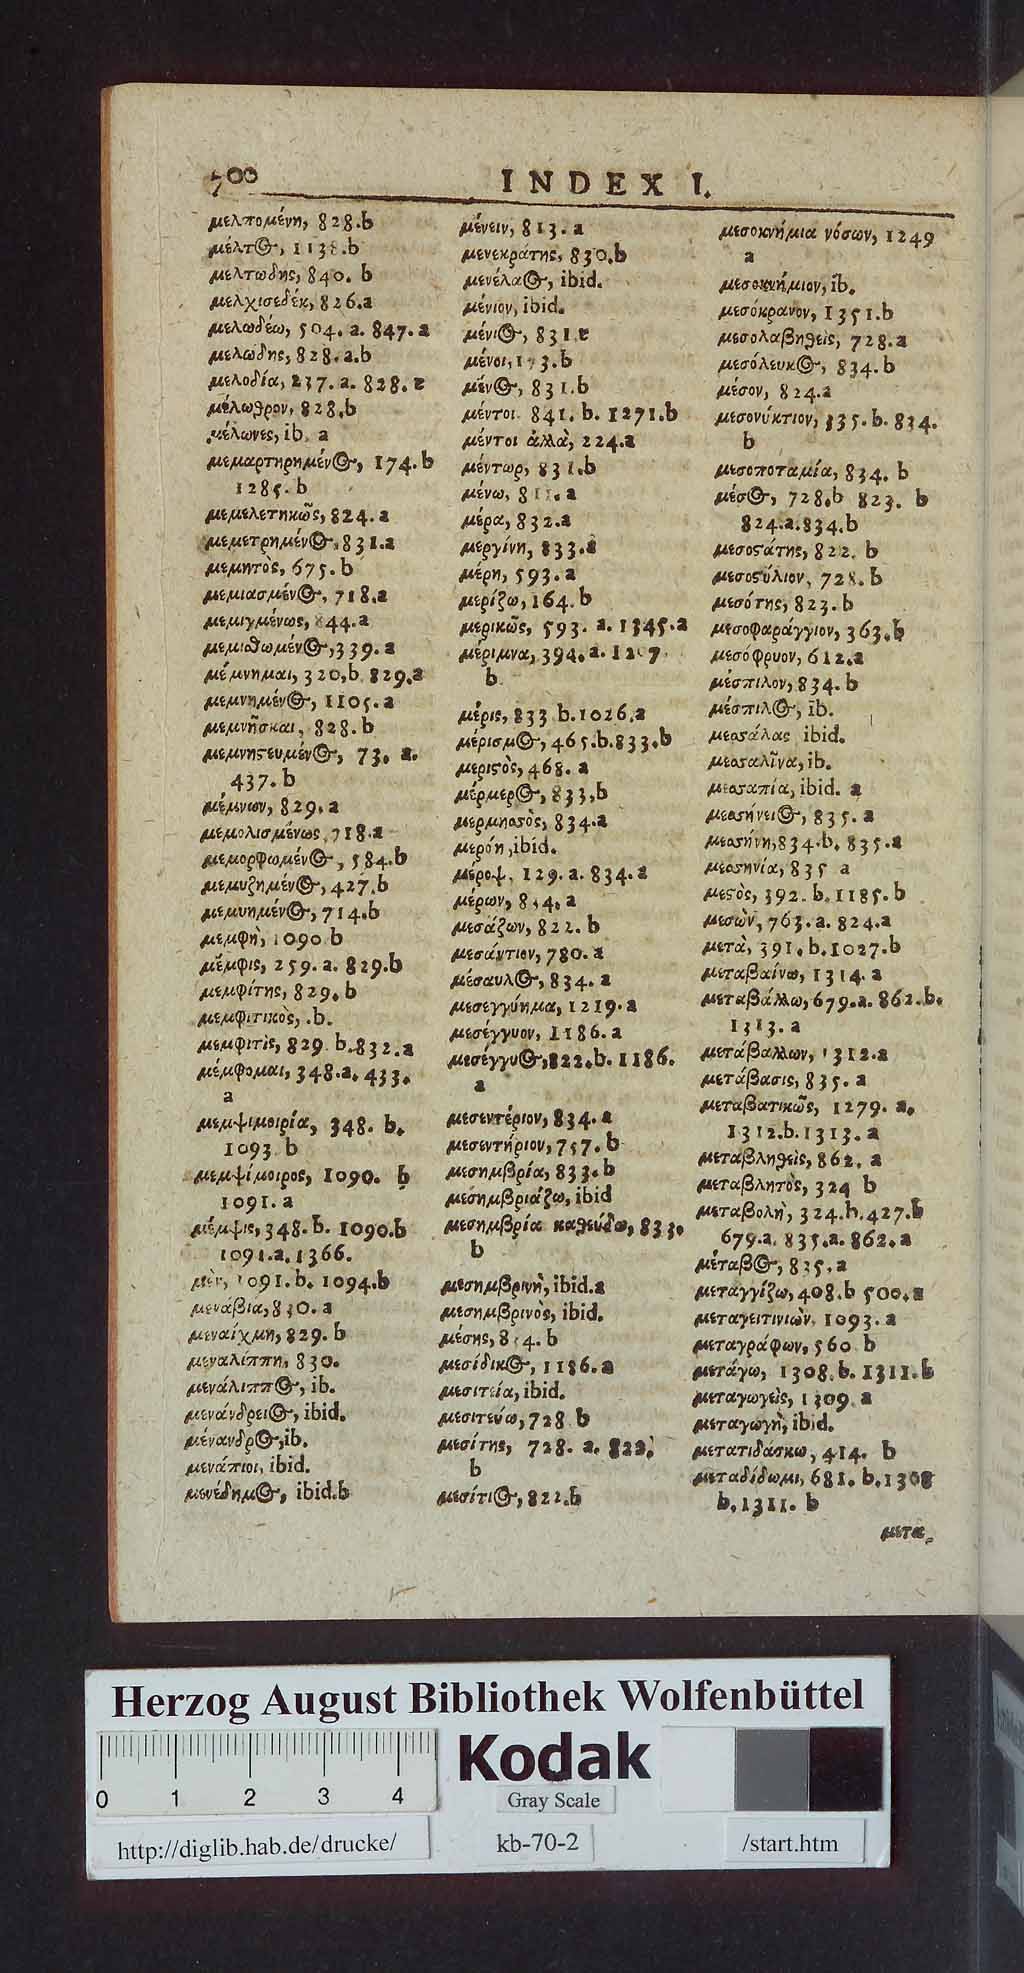 700
INDEX I.
μελπομένη, 828.b
μέλτος, 1138.b
μελτώδης, 840. b
μελχισεδέκ, 826.a
μελωδέω, 504. a. 847. a
μελώδης, 828. a.b
μελοδία, 237. a. 828.
μέλωθρον, 828.b
μέλωνες, ib. a
μεμαρτηρημένος, 174. b
1285. b
μεμελετηκῶς, 824. a
μεμετρημένος, 831.a
μεμητὸς, 675. b
μεμιασμένος, 718.a
μεμιγμένως, 844.a
μεμισθωμένος, 339. a
μέμνημαι, 320,b. 829.a
μεμνημένος, 1105. a
μεμνῆσκαι, 828. b
μεμνηςευμένος, 73. a.
437. b
μέμνων, 829. a
μεμολισμένως, 718.a
μεμορφωμένος, 584.b
μεμυζημένος, 427.b
μεμυημένος, 714.b
μεμφὴ, 1090 b
μέμφις, 259. a. 829.b
μεμφίτης, 829. b
μεμφιτικὸς, .b.
μεμφιτὶς, 829. b.832.a
μέμφομαι, 348.a. 433.
a
μεμψιμοιρία, 348. b.
1093. b
μεμψίμοιρος, 1090. b
1091. a
μέμψις, 348. b. 1090.b
1091.a. 1366.
μὲν, 1091. b. 1094.b
μενάβια, 830. a
μεναίχμη, 829. b
μεναλίππη, 830.
μενάλιππος, ib.
μενάνδρειος, ibid.
μένανδρος, ib.
μενάπιοι, ibid.
μενέδημος, ibid.b
μένειν, 813. a
μενεκράτης, 830.b
μενέλαος, ibid.
μένιον, ibid.
μένιος, 831.
μένοι, 173.b
μένος, 831.b
μέντοι 841. b. 1271.b
μέντοι ἀλλὰ, 224.a
μέντωρ, 831.b
μένω, 811. a
μέρα, 832.a
μεργίνη, 833.a
μέρη, 593. a
μερίζω, 164. b
μερικῶς, 593. a. 1345.a
μέριμνα, 394. a. 1207.
b
μέρις, 833 b. 1026.a
μέρισμος, 465.b.833.b
μεριςὸς, 468. a
μέρμερος, 833,b
μερμησσὸς, 834.a
μερόη, ibid.
μέροψ, 129. a. 834. a
μέρων, 834. a
μεσάζων, 822. b
μεσάντιον, 780. a
μέσαυλος, 834. a
μεσεγγύημα, 1219. a
μεσέγγυον, 1186. a
μεσέγγυος, 822. b. 1186.
a
μεσεντέριον, 834. a
μεσεντήριον, 757. b
μεσημβρία, 833. b
μεσημβριάζω, ibid
μεσημβρία καθεύδω, 833.
b
μεσημβρινὴ, ibid.a
μεσημβρινὸς, ibid.
μέσης, 834. b
μεσίδικος, 1186. a
μεσιτεία, ibid.
μεσιτεύω, 728 b
μεσίτης, 728. a. 822.
b
μεσίτιος, 822.b
μεσοκνήμια νόσων, 1249
a
μεσοκνήμιον, ib.
μεσόκρανον, 1351.b
μεσολαβηθεὶς, 728. a
μεσόλευκος, 834. b
μέσον, 824.a
μεσονύκτιον, 835. b. 834.
b
μεσοποταμία, 834. b
μέσος, 728.b 823. b
824.a.834.b
μεσοςάτης, 822. b
μεσοςύλιον, 728. b
μεσότης, 823. b
μεσοφαράγγιον, 363.b
μεσόφρυον, 612.a
μέσπιλον, 834. b
μέσπιλος, ib.
μεσσάλας ibid.
μεσσαλῖνα, ib.
μεσσαπία, ibid. a
μεσσήνειος, 835. a
μεσσήνη, 834. b. 835.a
μεσσηνία, 835 a
μεςὸς, 392. b. 1185. b
μεσὼν, 763. a. 824.a
μετὰ, 391. b. 1027.b
μεταβαίνω, 1314. a
μεταβάλλω, 679.a. 862. b.
1313. a
μετάβαλλων, 1312.a
μετάβασις, 835. a
μεταβατικῶς, 1279. a.
1312.b. 1313. a
μεταβληθεὶς, 862. a
μεταβλητὸς, 324 b
μεταβολὴ, 324.h. 427.b
679.a. 835.a. 862.a
μέταβος, 835. a
μεταγγίζω, 408.b 500.a
μεταγειτνιὼν, 1093. a
μεταγράφων, 560 b
μετάγω, 1308. b. 1311.b
μεταγωγεὶς, 1309. a
μεταγωγὴ, ibid.
μετατιδάσκω, 414. b
μεταδίδωμι, 681. b. 1308
b. 1311. b
μετα-
Herzog August Bibliothek Wolfenbüttel
Kodak
Gray Scale
0 1 2 3 4
http://diglib.hab.de/drucke/
kb-70-2
/start.htm